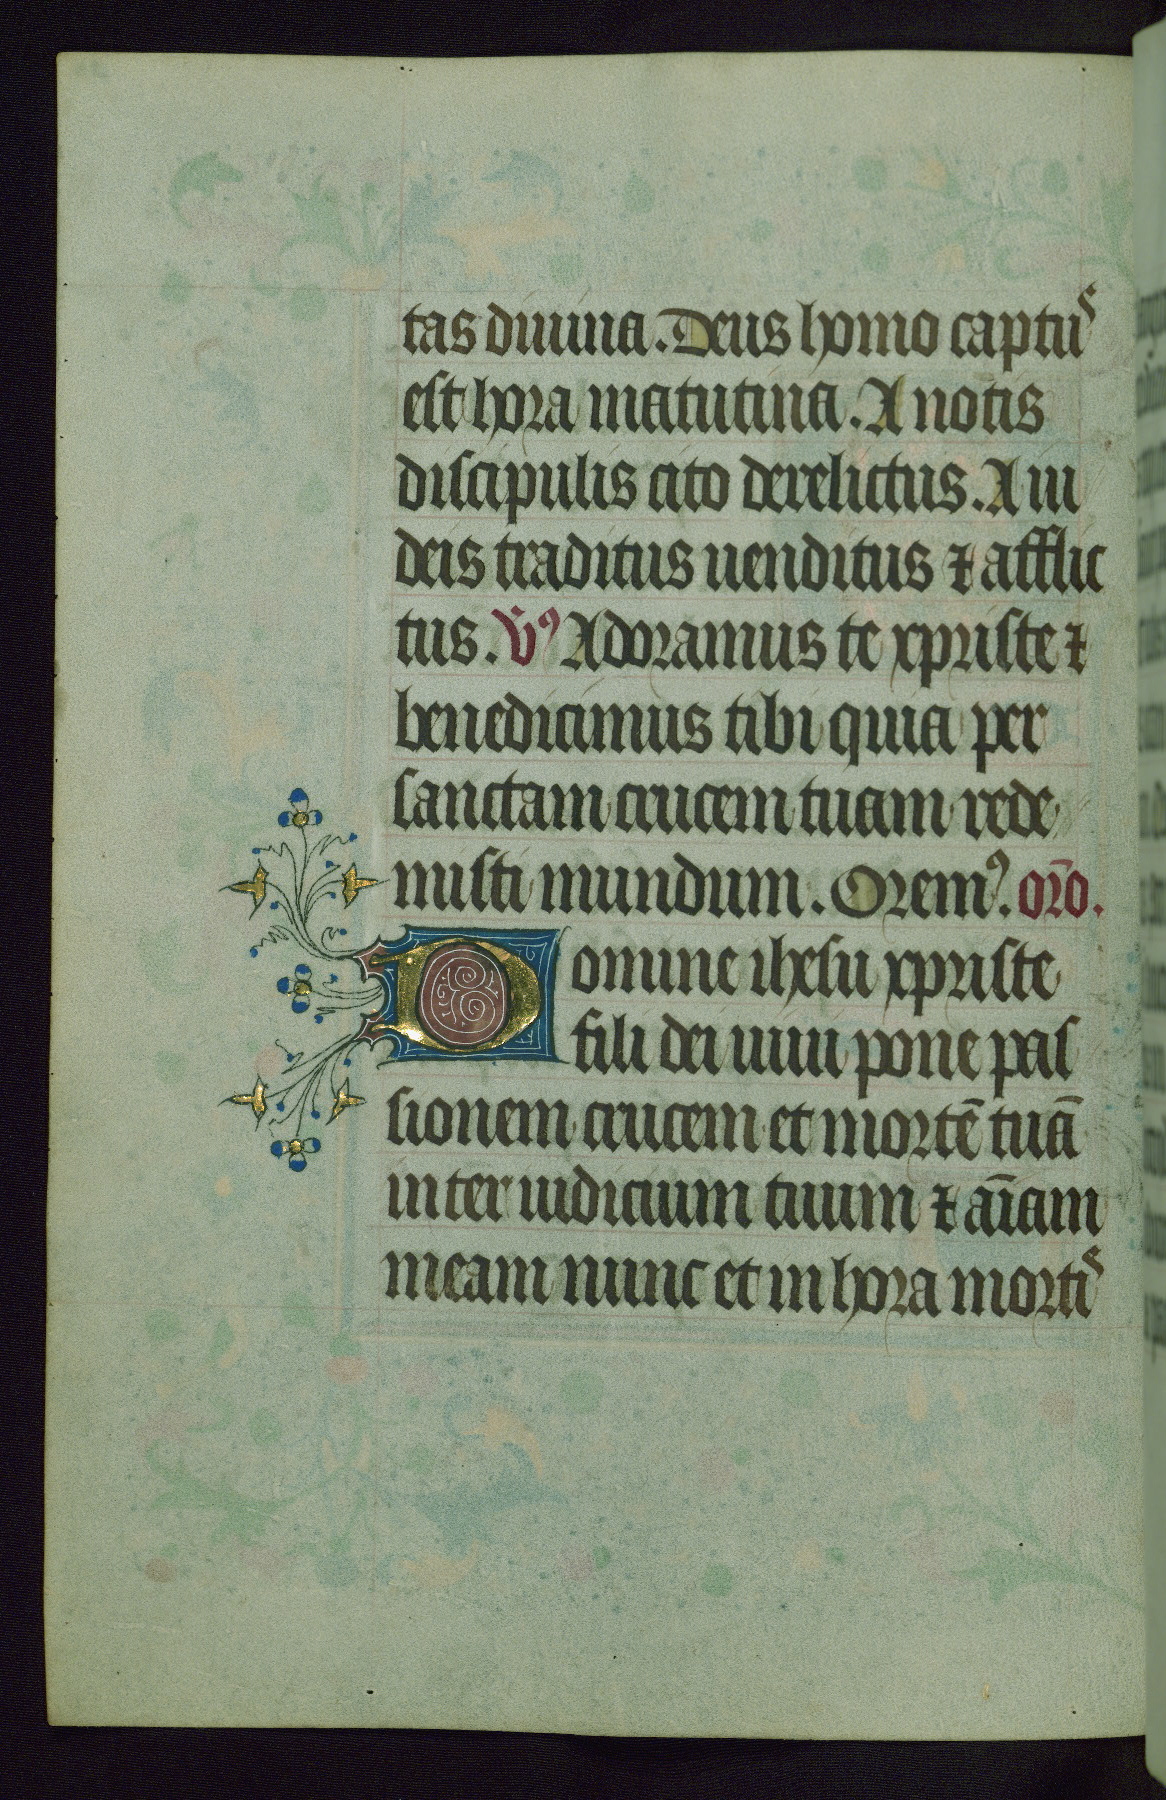 tas diuina. Deus homo captus
est hora matutina. A notis
discipulis cito derelictus. A iu
deis traditus uenditus ⁊ afflic
tus. V̄ꝰ Adoramus te xpriste ⁊
benedicimus tibi quia per
sanctam crucem tuam rede
misti mundum. Oremꝰ. or̄o.
Domine ihesu xpriste
fili dei uiui pone pas
sionem crucem et mortē tuā
inter iudicium tuum ⁊ aīam
meam nunc et in hora mortis